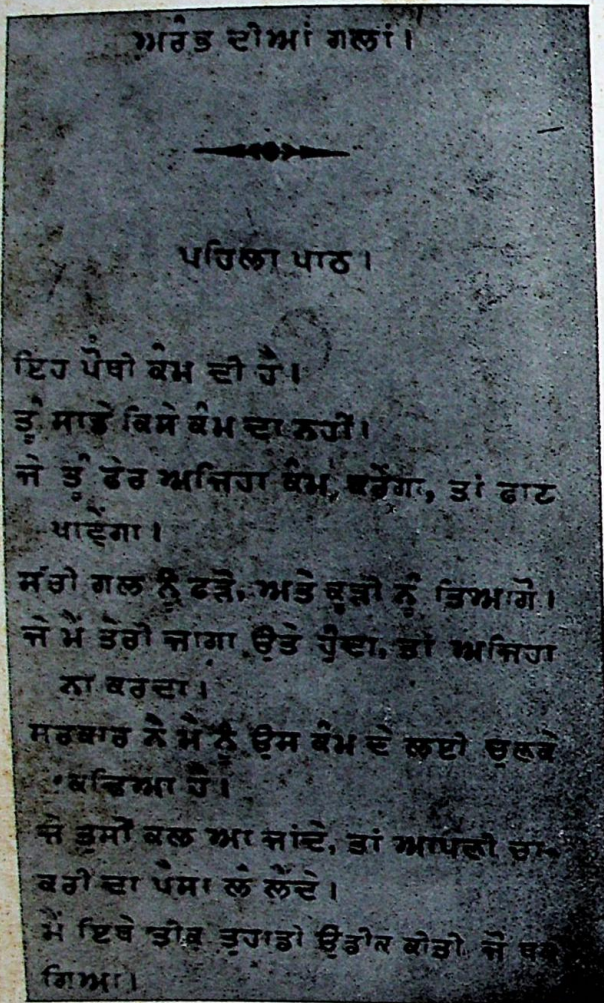 ਅਰੰਭ ਦੀਆਂ ਗਲਾਂ।
ਪਹਿਲਾ ਪਾਠ।
ਇਹ ਪੋਥੀ ਕੰਮ ਦੀ ਹੈ।
ਤੂੰ ਸਾਡੇ ਕਿਸੇ ਕੰਮ ਦਾ ਨਹੀਂ।
ਜੇ ਤੂੰ ਫੇਰ ਅਜਿਹਾ ਕੰਮ ਕਰੇਂਗਾ, ਤਾਂ ਫਾਟ
ਖਾਵੇਂਗਾ।
ਸੱਚੀ ਗਲ ਨੂੰ ਫੜੋ, ਅਤੇ ਕੂੜੀ ਨੂੰ ਤਿਆਗੋ।
ਜੇ ਮੈਂ ਤੇਰੀ ਜਾਗਾ ਉਤੇ ਹੁੰਦਾ, ਤਾਂ ਅਜਿਹਾ
ਨਾ ਕਰਦਾ।
ਸਰਕਾਰ ਨੈ ਮੈ ਨੂੰ ਉਸ ਕੰਮ ਦੇ ਲਈ ਚੁਣਕੇ
ਕਢਿਆ ਹੈ।
ਜੇ ਤੁਸੀਂ ਕਲ ਆ ਜਾਂਦੇ, ਤਾਂ ਆਪਣੀ ਚਾ-
ਕਰੀ ਦਾ ਪੈਸਾ ਲੈ ਲੈਂਦੇ।
ਮੈਂ ਇਥੇ ਤੀਕ ਤੁਹਾਡੀ ਉਡੀਕ ਕੀਤੀ ਜੋ ਥਕ
ਗਿਆ।